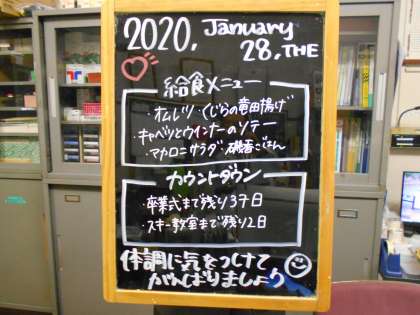 2020. January
28, THE
給食メニュー
・オムレツ・くじらの竜田揚げ
・キャベツとウインナーのソテー
・マカロニサラダ・磯香ごはん
カウントダウン
・卒業式まで残り37日
・スキー教室まで残り2日
体調に気をつけて
がんばりましょう